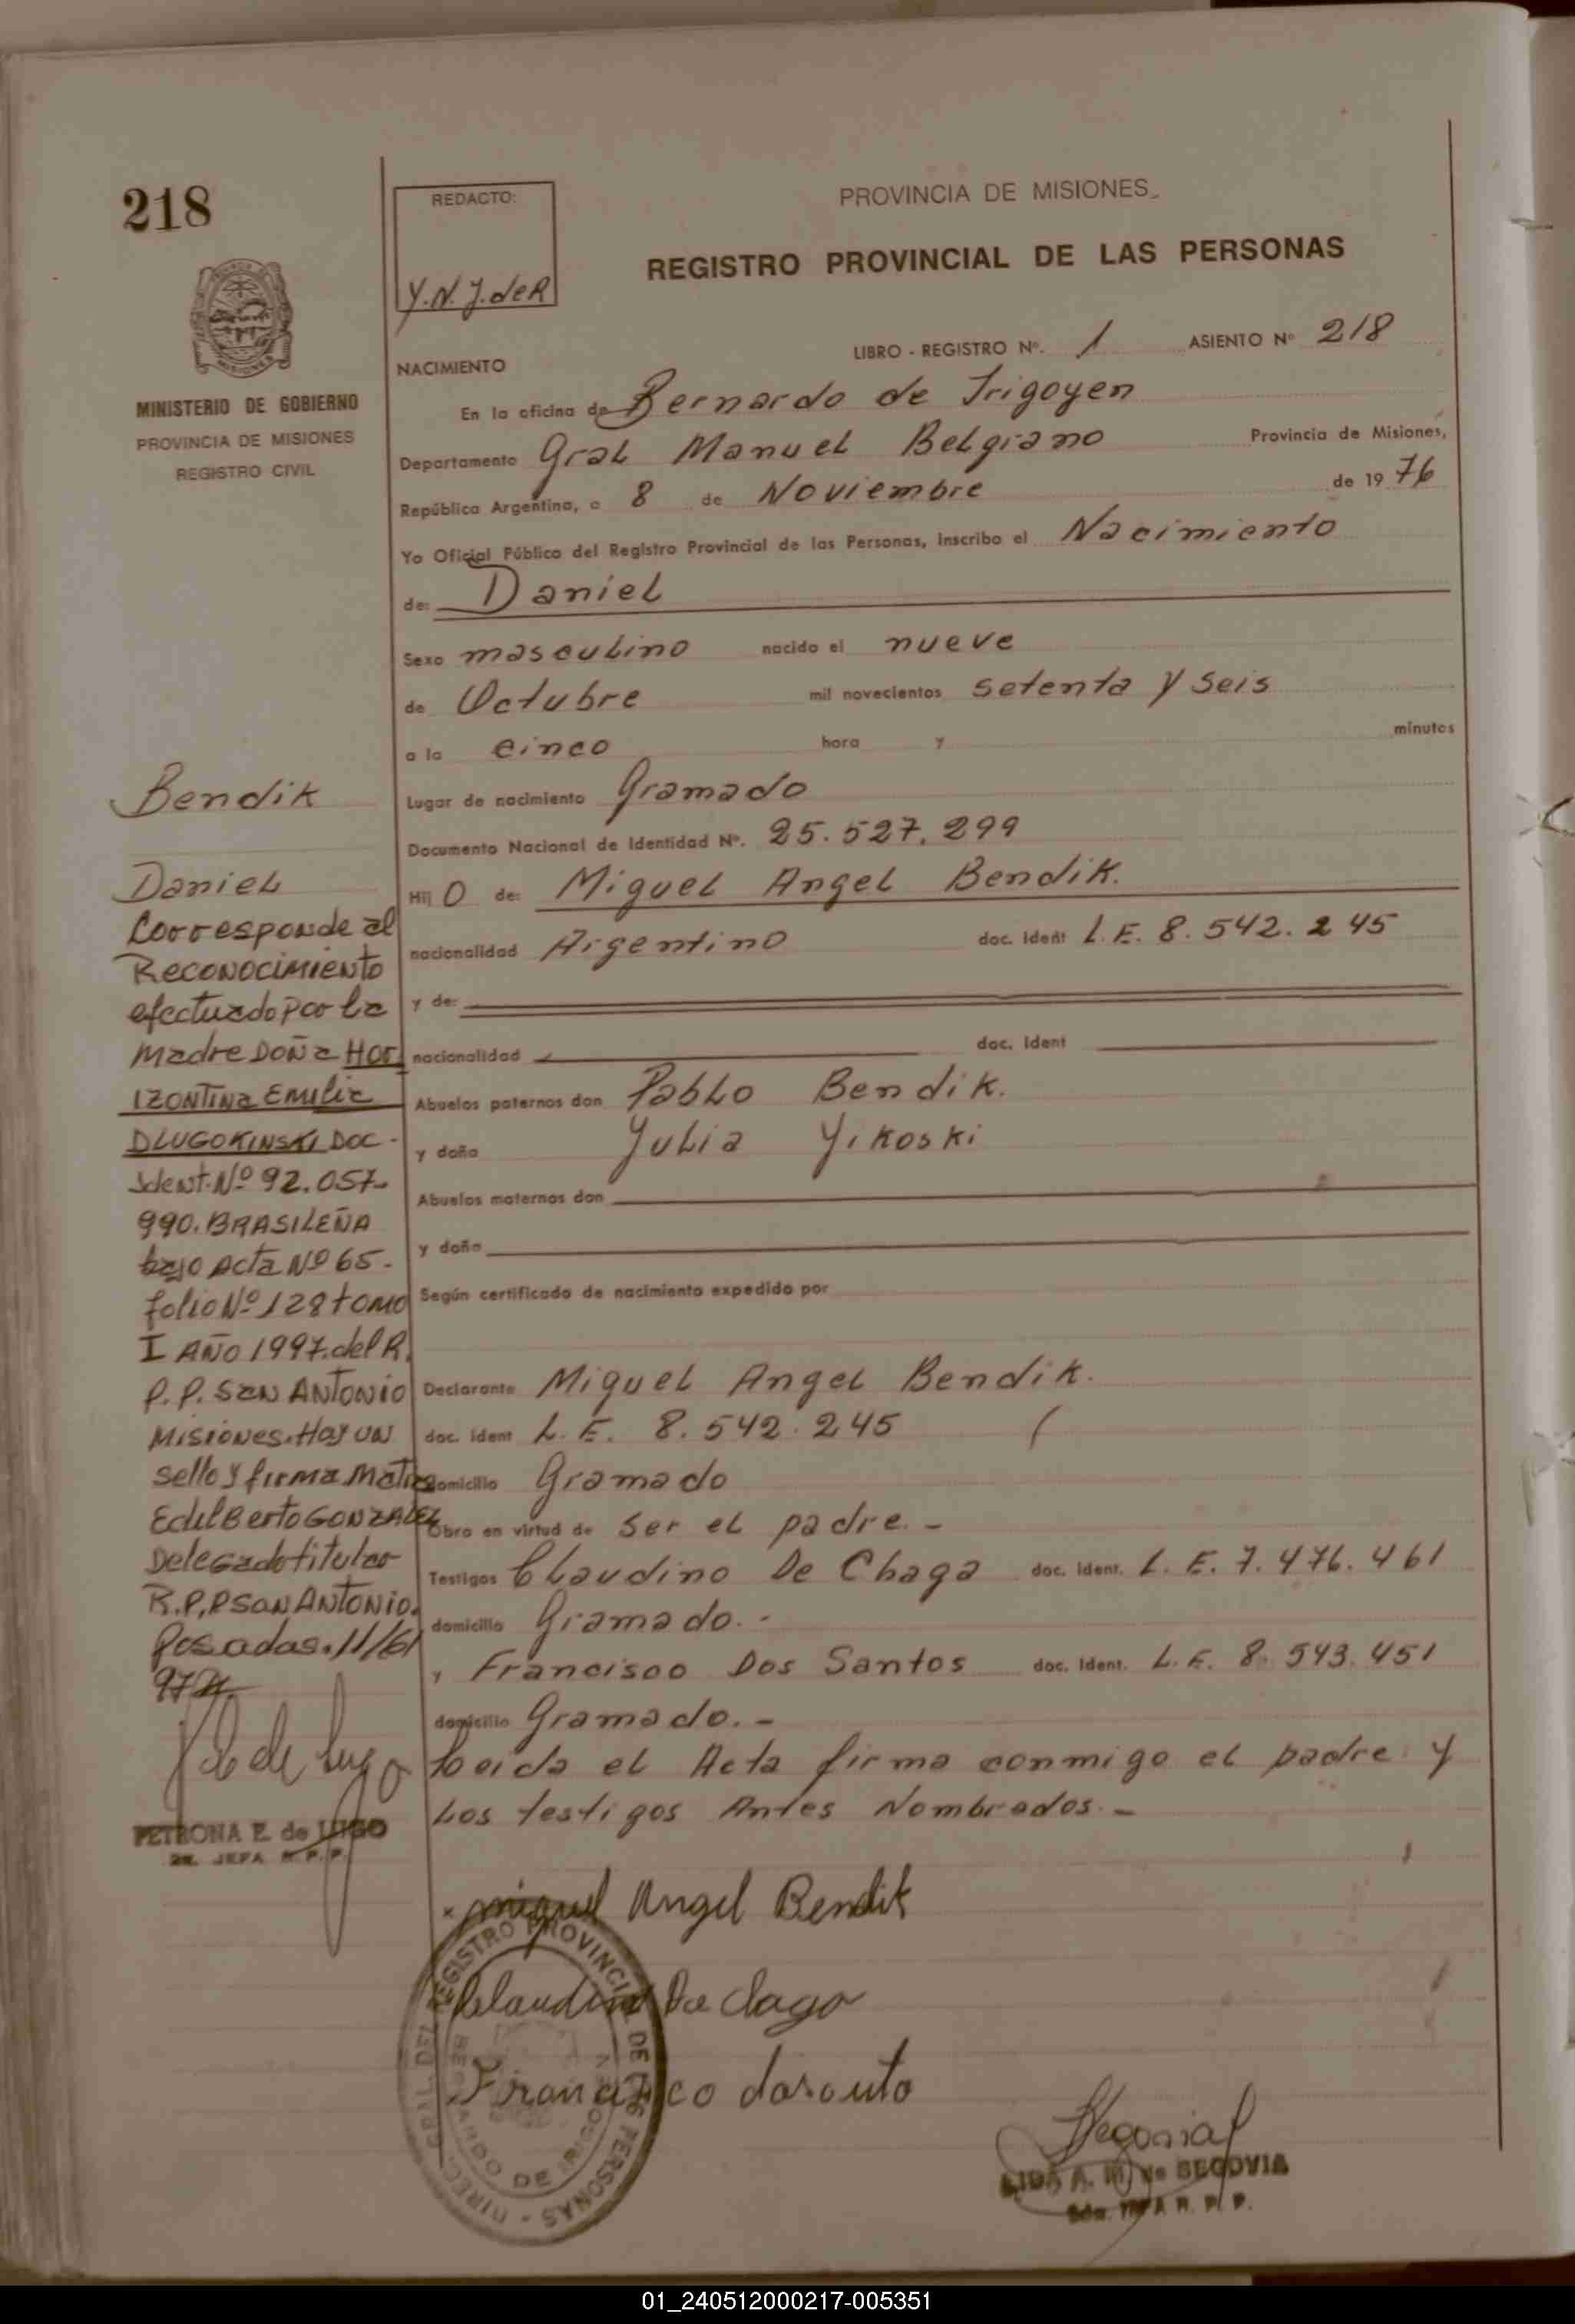 218
MINISTERIO DE GOBIERNO
PROVINCIA DE MISIONES
REGISTRO CIVIL
REDACTO:
Y.N.J.deR
PROVINCIA DE MISIONES
REGISTRO PROVINCIAL DE LAS PERSONAS
NACIMIENTO
LIBRO - REGISTRO Nº. 1 ASIENTO Nº 218
En la oficina de Bernardo de Irigoyen
Departamento Gral Manuel Belgrano Provincia de Misiones,
República Argentina, a 8 de Noviembre de 1976
Yo Oficial Público del Registro Provincial de las Personas, Inscribo el Nacimiento
de: Daniel
Sexo masculino nacido el nueve
de Octubre mil novecientos setenta y seis
a la cinco hora y minutos
Lugar de nacimiento Gramado
Documento Nacional de Identidad Nº. 25.527.299
Hij o de: Miguel Angel Bendik.
nacionalidad Argentino doc. Ident L.E. 8.542.245
y de:
nacionalidad doc. Ident
Abuelos paternos don Pablo Bendik.
y doña Yulia Yikoski
Abuelos maternos don
y doña
Según certificado de nacimiento expedido por
Declarante Miguel Angel Bendik.
doc. Ident L.E. 8.542.245
domicilio Gramado
Obra en virtud de ser el padre.-
Testigos Claudino De Chaga doc. Ident. L.E. 7.476.461
domicilio Gramado.-
y Francisco Dos Santos doc. Ident. L.E. 8.543.451
domicilio Gramado.-
Leida el Acta firma conmigo el padre y
los testigos Antes Nombrados.-
Bendik
Daniel
Corresponde al
Reconocimiento
efectuado por la
Madre Doña Hor
IZONTINA Emilia
DLUGOKINSKI DOC-
Ident. Nº 92.057-
990. BRASILEÑA
bajo Acta Nº 65-
folio Nº 128 tomo
I AÑO 1997.del R.
P.P. San ANTONIO
Misiones. Hay UN
sello y firma
EdelBerto GONZALEZ
Delegado titular
R.P.P San ANTONIO.
Posadas. 11/6/
97
PETRONA E. de LUGO
JEFA R.P.P.
Miguel Angel Bendik
Claudino De Chaga
DIREC. GRAL. DEL REGISTRO PROVINCIAL DE LAS PERSONAS
BERNARDO DE IRIGOYEN
LIDA A. M. de SEGOVIA
JEFA R. P. P.
01_240512000217-005351